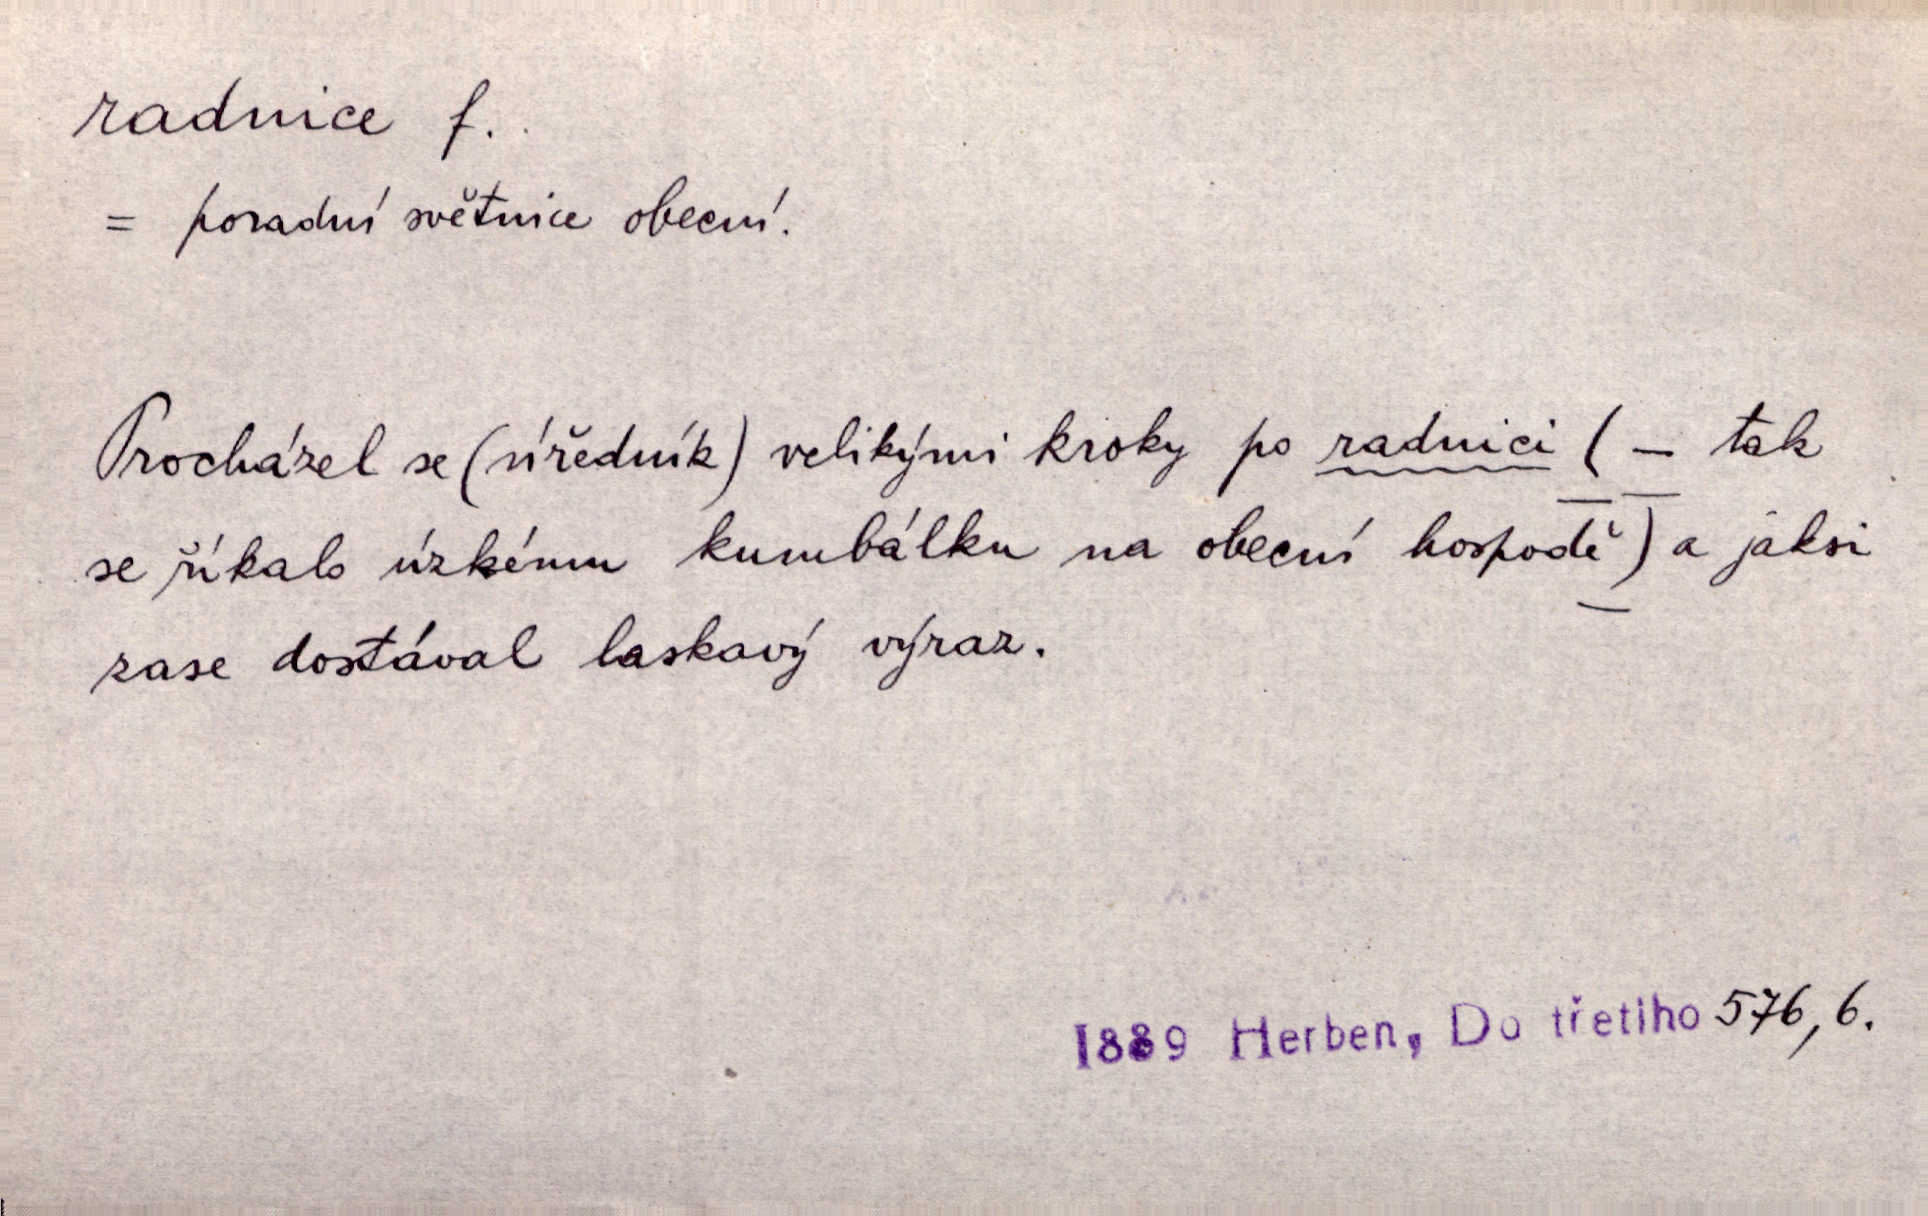 radnice f.
= poradní světnice obecní.
Procházel se (úředník) velikými kroky po radnici ( — tak
se říkalo úzkému kumbálku na obecní hospodě) a jaksi
zase dostával laskavý výraz.
1889 Herben, Do třetího 576, 6.